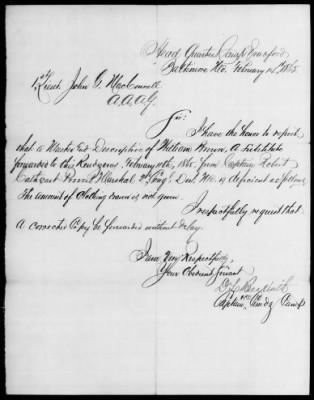 Head Quarters Camp Bradford
Baltimore Md. February 1865.
1st Lieut. John G. MacConnell
A.A.A.G.
Sir:
I have the honor to report
that a Muster and Descriptive of William Brown, A Substitute
forwarded to this Rendezvous, February 10th, 1865 from Captain Robert
Cathcart Provost Marshal 2d Cong. Dist. Md. is deficient as follows
The amount of Clothing drawn is not given.
I respectfully request that
a corrected Copy be forwarded without delay.
I am Very Respectfully
Your Obedient Servant
Captain Comdg Camp